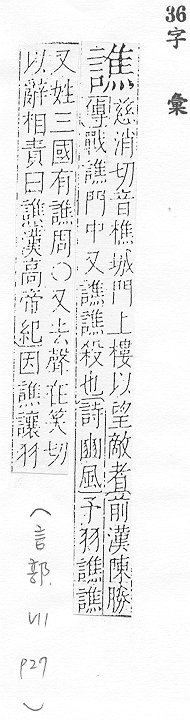 36
字彙
譙 慈消切音樵城門上樓以望敵者前漢陳勝
傳戰譙門中又譙譙殺也詩豳風予羽譙譙
又姓三國有譙周○又去聲在笑切
以辭相責曰譙漢高帝紀因譙讓羽
(言部 VII p27)